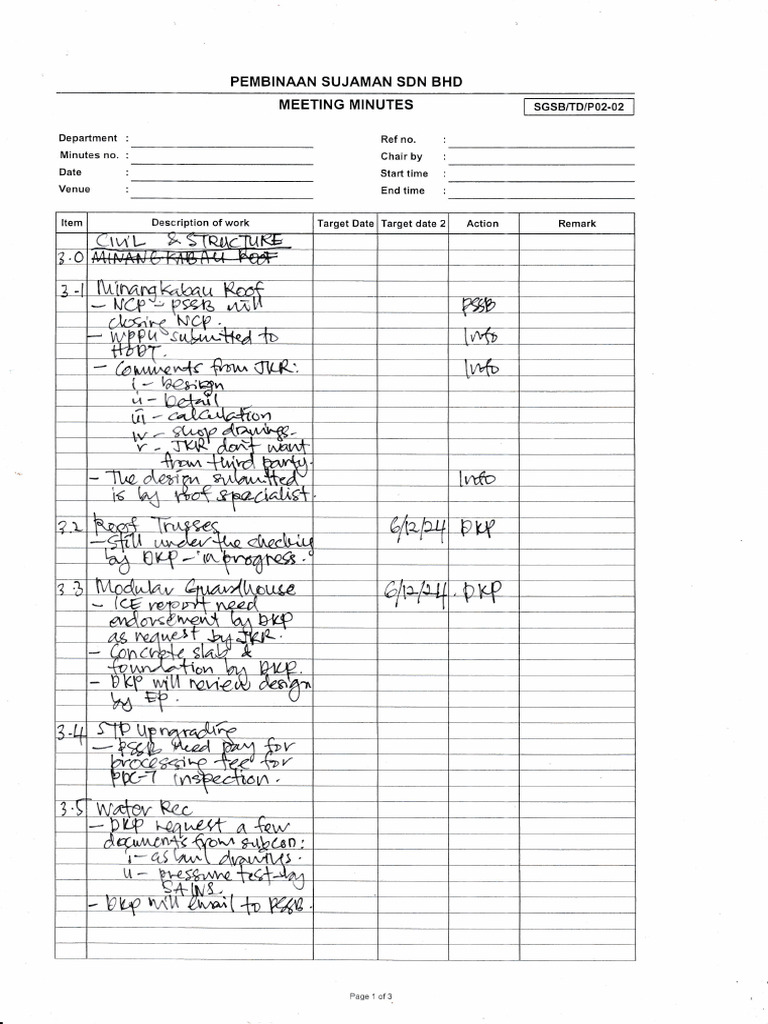 PEMBINAAN SUJAMAN SDN BHD
MEETING MINUTES
SGSB/TD/P02-02
Department :
Ref no. :
Minutes no. :
Chair by :
Date :
Start time :
Venue :
End time :
Item Description of work Target Date Target date 2 Action Remark
CIVIL & STRUCTURE
3.0 MINANGKABAU ROOF
3-1 Minangkabau Roof
- NCP - PSSB will PSSB
closing NCP.
- WPPU submitted to Info
HODT.
- Comments from JKR: Info
i - Design
ii - Detail
iii - calculation
iv - shop drawings.
v - JKR don't want
from third party.
- The design submitted Info
is by roof specialist.
3.2 Roof Trusses 6/12/24 DKP
- Still under the checking
by DKP - in progress.
3.3 Modular Guardhouse 6/12/24. DKP
- ICE report need
endorsement by DKP
as request by JKR.
- Concrete slab &
foundation by DKP.
- DKP will review design
by EP.
3-4 STP Upngrading
- PSSB need pay for
processing fee for
PDC-7 inspection.
3.5 Water Rec
- DKP request a few
documents from subcon:
i - as laid drawings.
ii - pressure test by
SAINS.
- DKP will email to PSSB.
Page 1 of 3